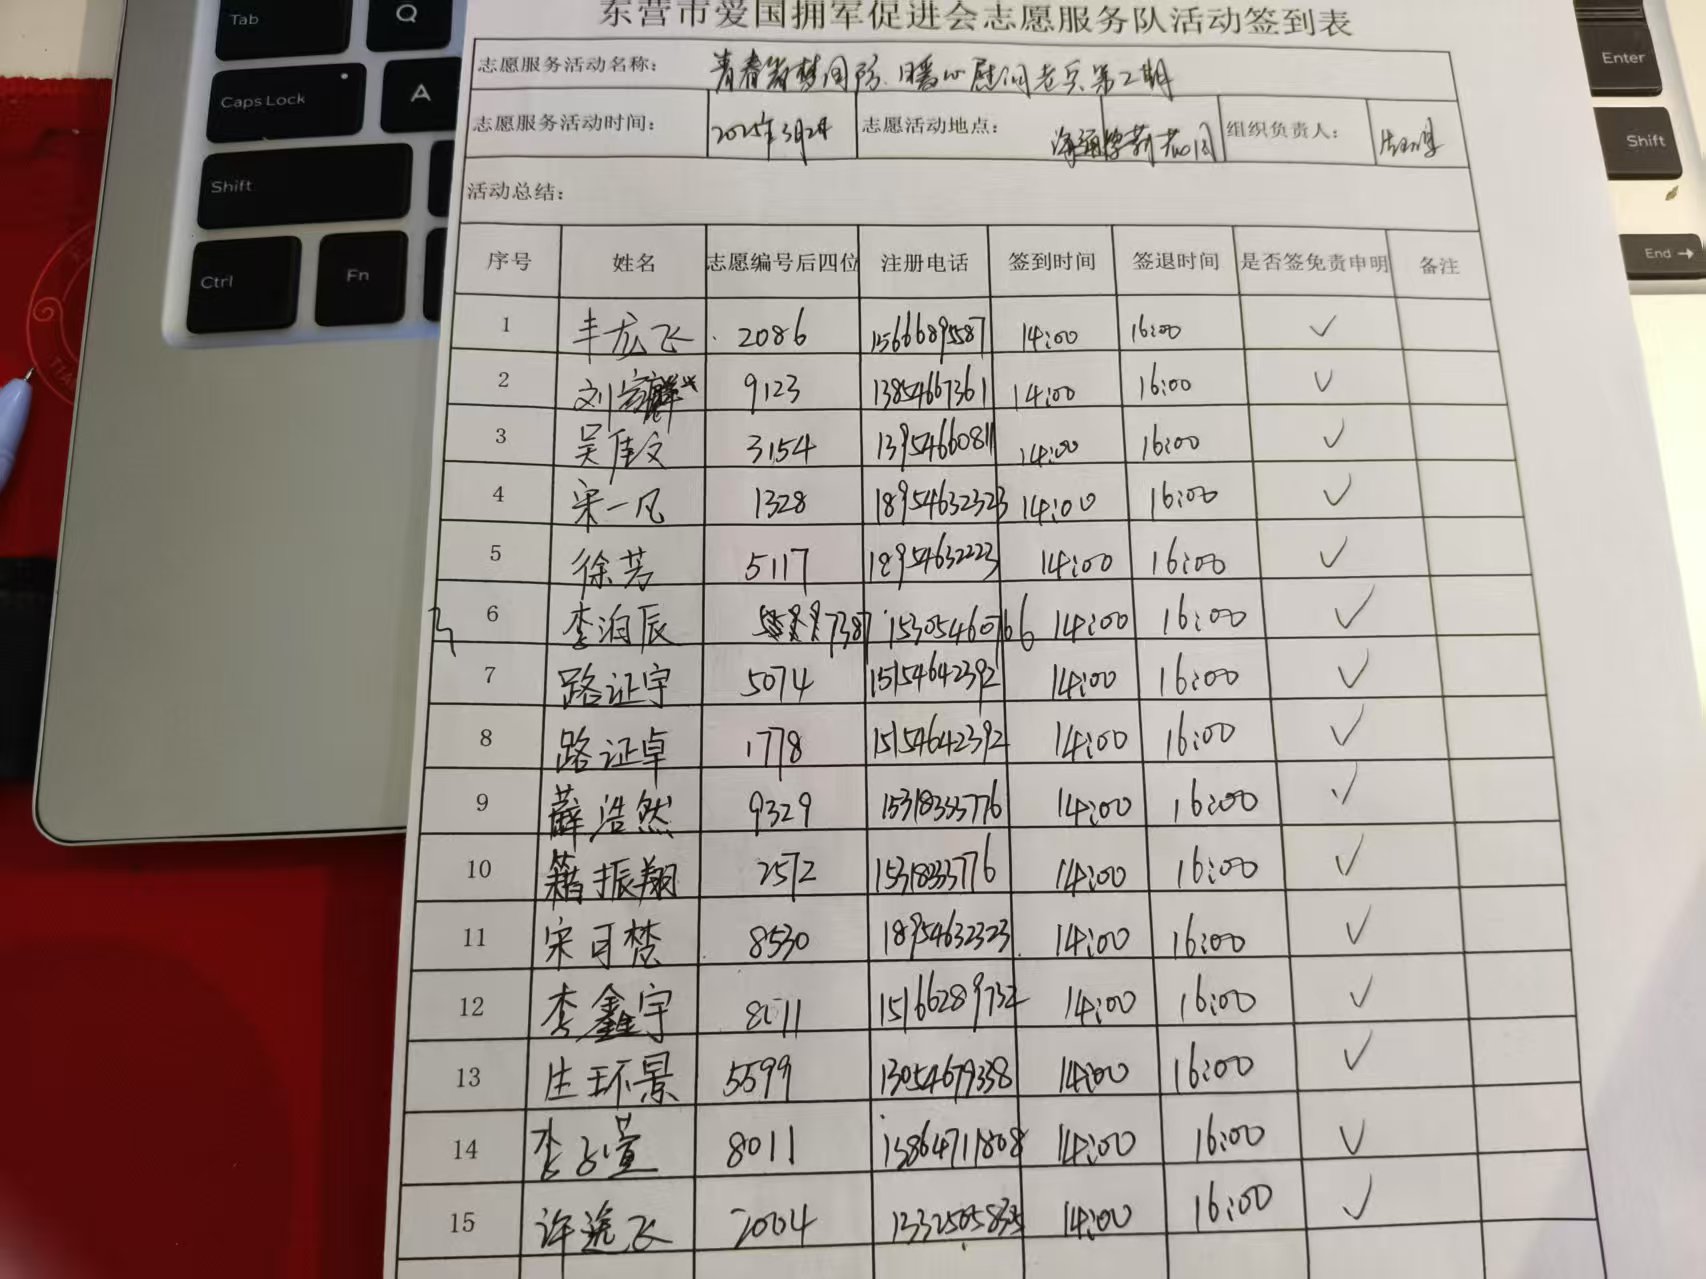 Tab
Q
Caps Lock
A
Shift
Ctrl
Fn
Enter
Shift
End →
东营市爱国拥军促进会志愿服务队活动签到表
志愿服务活动名称: 青春筑梦团队.暖心慰问老兵第2期
志愿服务活动时间: 2025年3月2日 志愿活动地点: 组织负责人:
活动总结:
序号 姓名 志愿编号后四位 注册电话 签到时间 签退时间 是否签免责申明 备注
1 丰龙飞 2086 15666895587 14:00 16:00 ✓
2 刘 9123 13854667361 14:00 16:00 ✓
3 吴佳文 3154 13954660811 14:00 16:00 ✓
4 宋一凡 1328 18954632323 14:00 16:00 ✓
5 徐芳 5117 18954632223 14:00 16:00 ✓
6 李泊辰 7387 15305460766 14:00 16:00 ✓
7 路证宇 5074 15154642392 14:00 16:00 ✓
8 路证卓 1778 15154642392 14:00 16:00 ✓
9 薛浩然 9329 15318333776 14:00 16:00 ✓
10 籍振翔 2572 15318333776 14:00 16:00 ✓
11 宋可楚 8530 18954632323 14:00 16:00 ✓
12 李鑫宇 8011 15166289732 14:00 16:00 ✓
13 庄环景 5599 13054679338 14:00 16:00 ✓
14 李子萱 8011 13864711808 14:00 16:00 ✓
15 许逸飞 2004 14:00 16:00 ✓